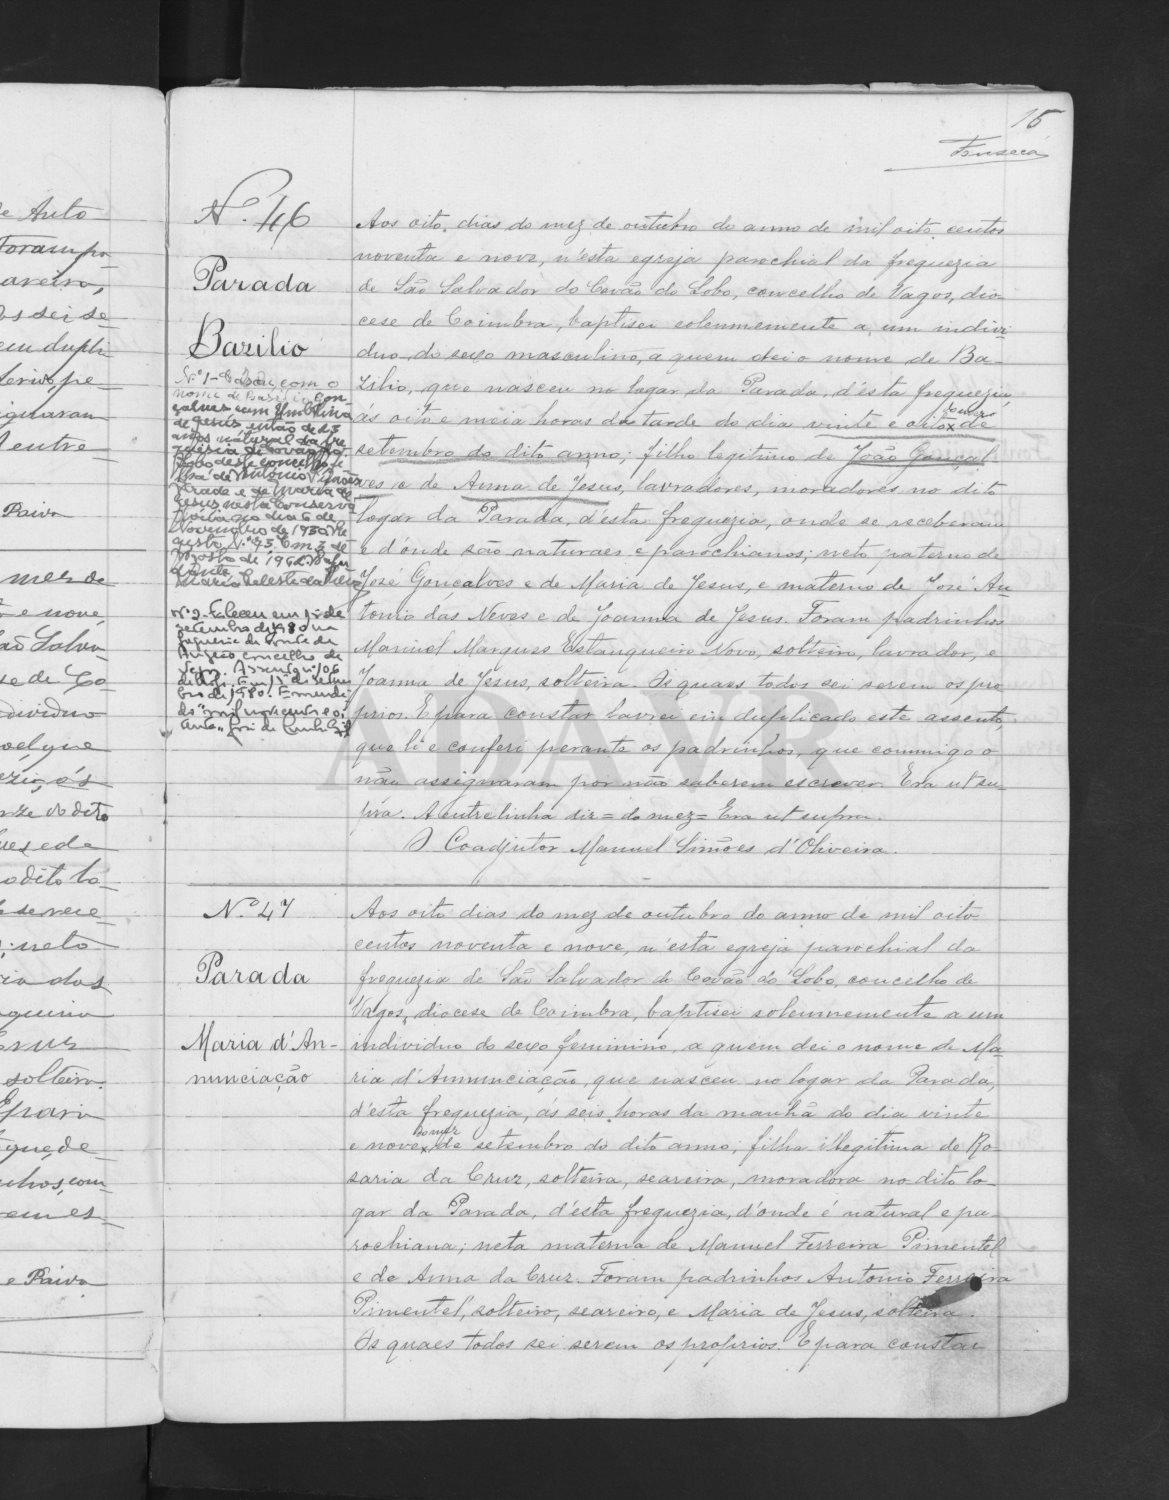 15
Fonseca
N.º 46
Parada
Bazilio
Nº 1 - Casou com o
nome de Basilio Gon-
çalves com Umbelina
de Jesus
anos natural da fre-
guesia de Covão do
Lobo deste concelho
de Antonio
e de Maria de
Jesus, nesta Conserva-
toria no dia 6 de
Novembro de 1930
Em 3 de
Agosto de 1962
Nº 2. Faleceu em de
setembro de 1980 na
freguesia de Ponte de
concelho de
Assento nº 106
bro de 1980.
Aos oito dias do mez de outubro do anno de mil oito centos
noventa e nove, n'esta egreja parochial da freguezia
de São Salvador do Covão do Lobo, concelho de Vagos, dio-
cese de Coimbra, baptisei solemnemente a um indivi-
duo do sexo masculino, a quem dei o nome de Ba-
zilio, que nasceu no logar da Parada, d'esta freguezia,
ás oito e meia horas da tarde do dia vinte e oito do mez de
setembro do dito anno; filho legitimo de João Gonçal-
ves e de Anna de Jesus, lavradores, moradores no dito
logar da Parada, d'esta freguezia, onde se receberam
e d'onde são naturaes e parochianos; neto paterno de
José Gonçalves e de Maria de Jesus, e materno de José An-
tonio das Neves e de Joanna de Jesus. Foram padrinhos
Manuel Marques Estanqueiro Novo, solteiro, lavrador, e
Joanna de Jesus, solteira. Os quaes todos sei serem os pro-
prios. E para constar lavrei em duplicado este assento,
que li e conferi perante os padrinhos, que commigo o
não assignaram por não saberem escrever. Era ut su-
pra. A entrelinha diz = do mez = Era ut supra.
O Coadjutor Manuel Simões d'Oliveira.
N.º 47
Parada
Maria d'An-
nunciação
Aos oito dias do mez de outubro do anno de mil oito
centos noventa e nove, n'esta egreja parochial da
freguezia de São Salvador do Covão do Lobo, concelho de
Vagos, diocese de Coimbra, baptisei solemnemente a um
individuo do sexo feminino, a quem dei o nome de Ma-
ria d'Annunciação, que nasceu no logar da Parada,
d'esta freguezia, ás seis horas da manhã do dia vinte
e nove do mez de setembro do dito anno; filha illegitima de Ro-
saria da Cruz, solteira, seareira, moradora no dito lo-
gar da Parada, d'esta freguezia, d'onde é natural e pa-
rochiana; neta materna de Manuel Ferreira Pimentel
e de Anna da Cruz. Foram padrinhos Antonio Ferreira
Pimentel, solteiro, seareiro, e Maria de Jesus, solteira.
Os quaes todos sei serem os proprios. E para constar
ADAVR